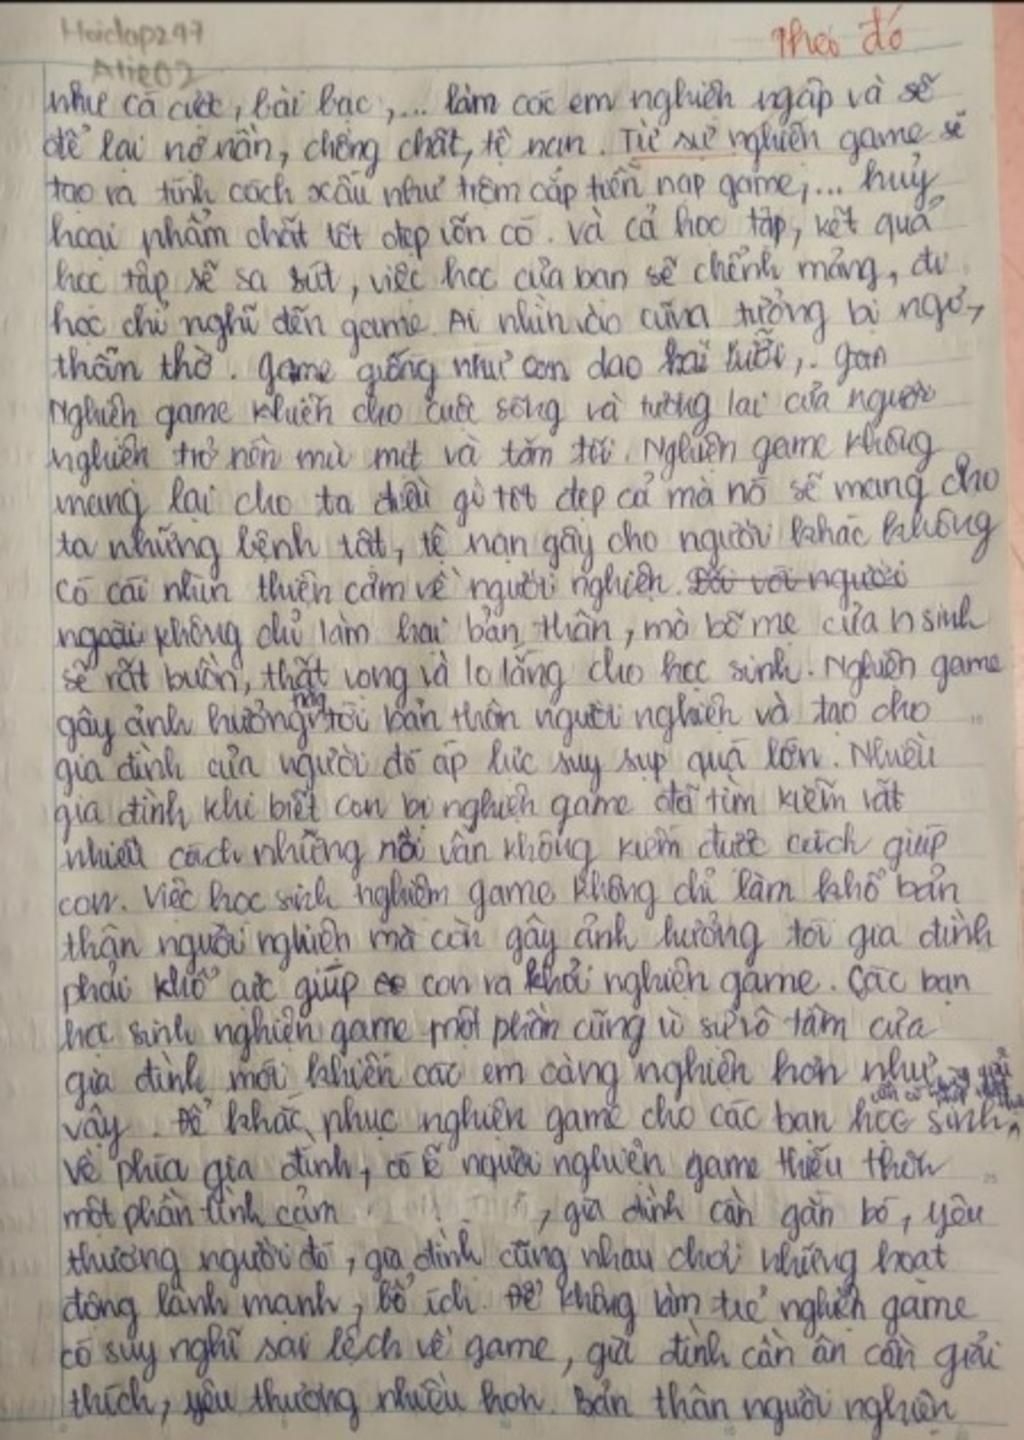 Hoidap247
Atie02
Theo đó
như cá cược, bài bạc,... làm các em nghiện ngập và sẽ
để lại nợ nần, chồng chất, tệ nạn. Từ sự nghiện game sẽ
tạo ra tính cách xấu như trộm cắp tiền nạp game,... huỷ
hoại phẩm chất tốt đẹp vốn có. Và cả học tập, kết quả
học tập sẽ sa sút, việc học của bạn sẽ chểnh mảng, đi
học chỉ nghĩ đến game. Ai nhìn vào cũng tưởng bị ngơ,
thẩn thờ. game giống như con dao hai lưỡi,. gan
Nghiện game khiến cho cuộc sống và tương lai của người
nghiện trở nên mù mịt và tăm tối. Nghiện game không
mang lại cho ta điều gì tốt đẹp cả mà nó sẽ mang cho
ta những bệnh tật, tệ nạn gây cho người khác không
có cái nhìn thiện cảm về người nghiện. Đối với người
ngoài không chỉ làm hại bản thân, mà bố mẹ của h sinh
sẽ rất buồn, thất vọng và lo lắng cho học sinh. Nghiện game
gây ảnh hưởng tới bản thân người nghiện và tạo cho
gia đình của người đó áp lực suy sụp quá lớn. Nhiều
gia đình khi biết con bị nghiện game đã tìm kiếm rất
nhiều cách nhưng rồi vẫn không kiếm được cách giúp
con. Việc học sinh nghiệm game không chỉ làm khổ bản
thân người nghiện mà còn gây ảnh hưởng tới gia đình
phải khổ cực giúp con ra khỏi nghiện game. Các bạn
học sinh nghiện game một phần cũng vì sự vô tâm của
gia đình mới khiến các em càng nghiện hơn như
vậy. Để khắc phục nghiện game cho các bạn học sinh,
Về phía gia đình, có lẽ người nghiện game thiếu thốn
một phần tình cảm , gia đình cần gắn bó, yêu
thương người đó, gia đình cùng nhau chơi những hoạt
động lành mạnh, bổ ích. Để không làm trẻ nghiện game
có suy nghĩ sai lệch về game, gia đình cần ân cần giải
thích, yêu thương nhiều hơn. Bản thân người nghiện